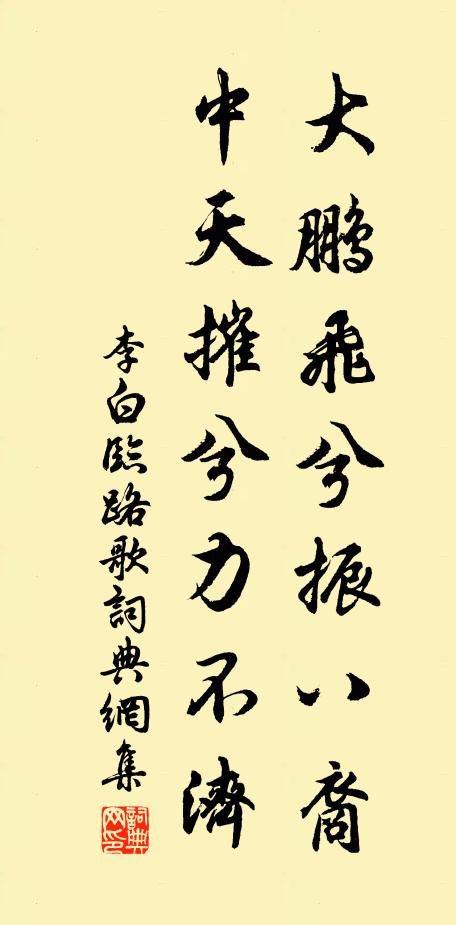 大鵬飛兮振八裔
中天摧兮力不濟
李白臨路歌詞典網集
詞典网印